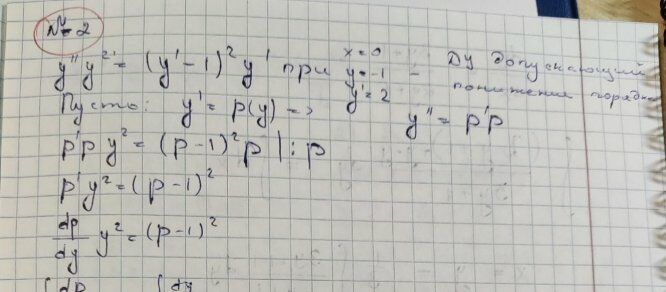 № 2
y''y² = (y' - 1)² y' при x = 0 y = -1 y' = 2 - ДУ допускающий понижения порядка
Пусть: y' = p(y) => y'' = p'p
p'p y² = (p - 1)² p | : p
p'y² = (p - 1)²
dp/dy y² = (p - 1)²
∫ dp ∫ dy